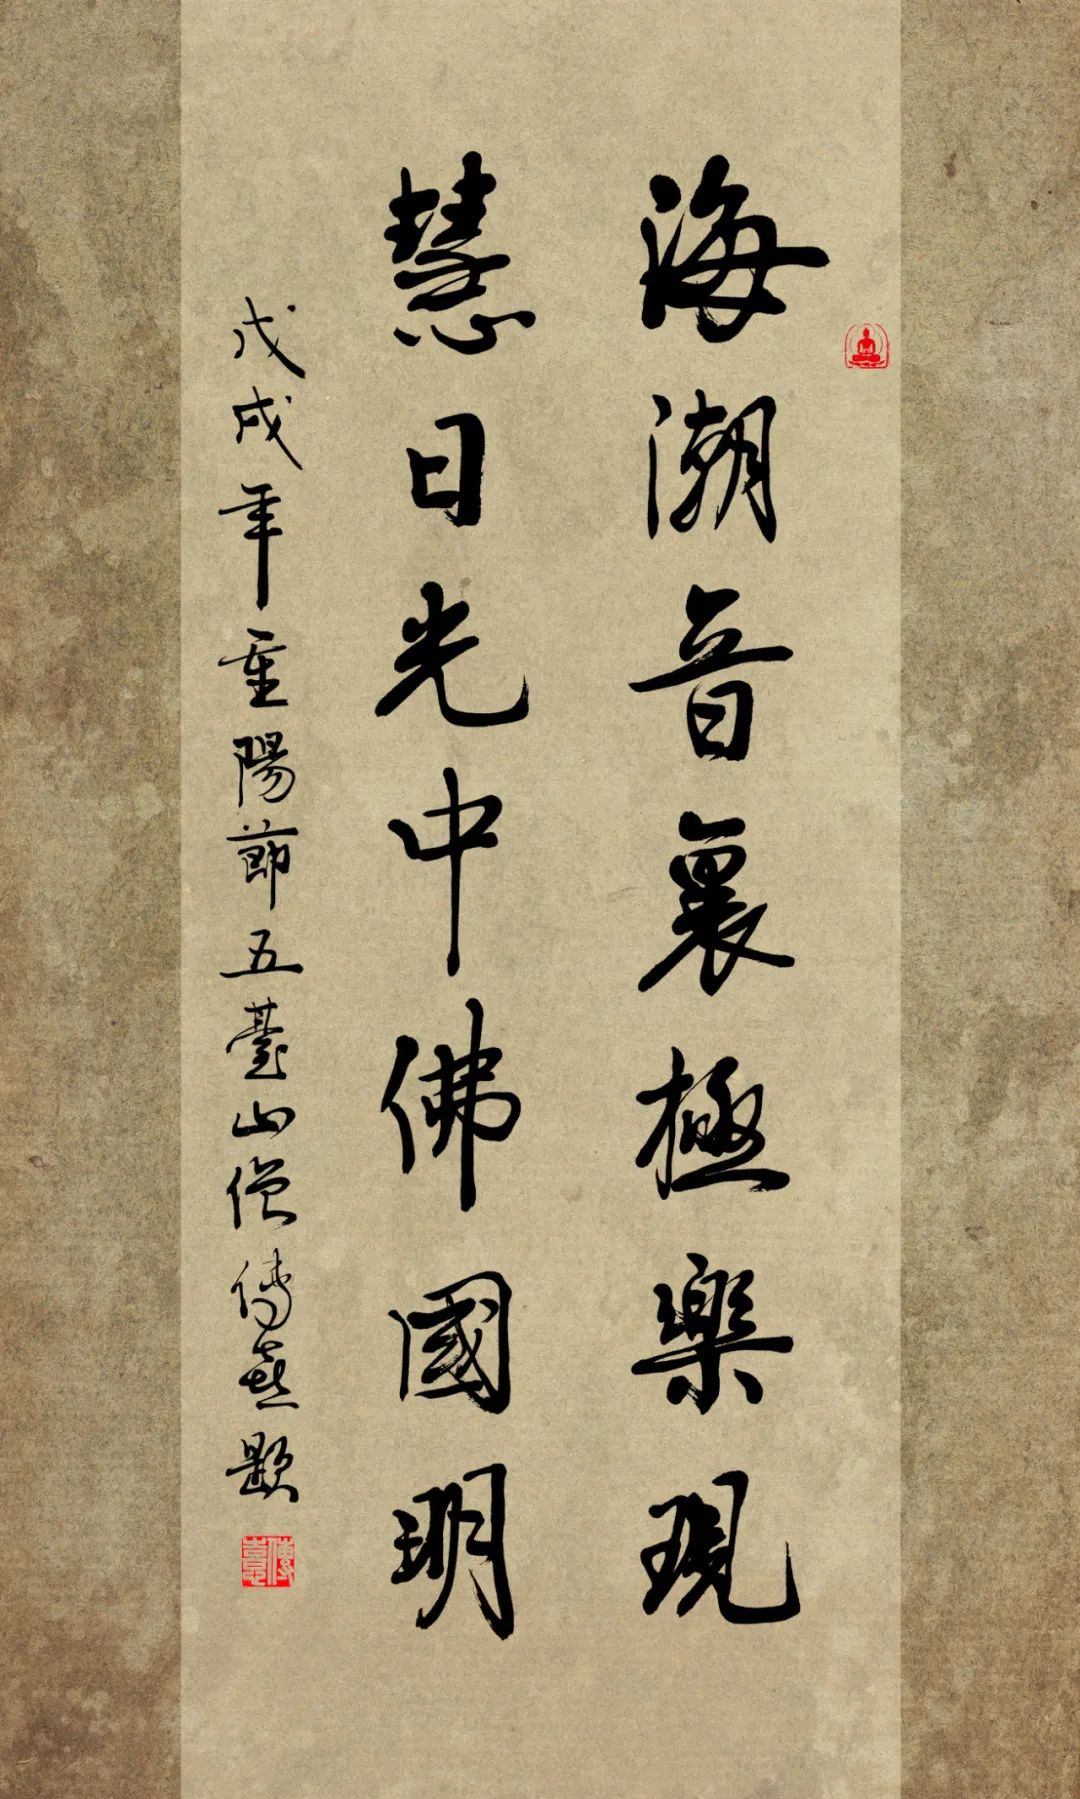 海潮音裏極樂現
慧日光中佛國明
戊戌年重陽節五臺山僧傳喜題
傳憙